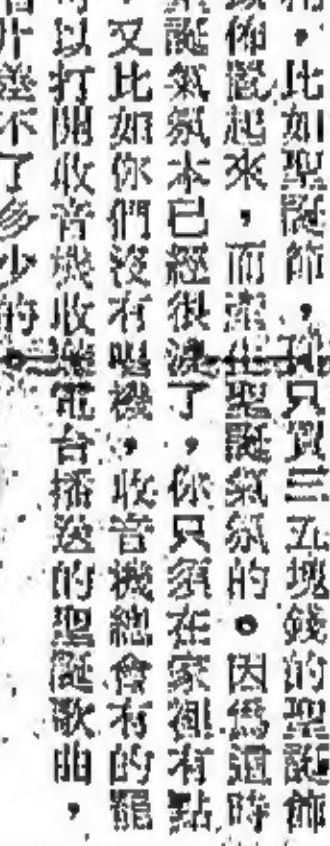 ，比如聖誕節，你只買三五塊錢的聖誕飾
佈置起來，而產生聖誕氣氛的。因爲這時
誕氣氛本已經很濃了，你只須在家裡有點
，又比如你們沒有唱機，收音機總會有的罷
以打開收音機收聽電台播送的聖誕歌曲，
片送不了多少的